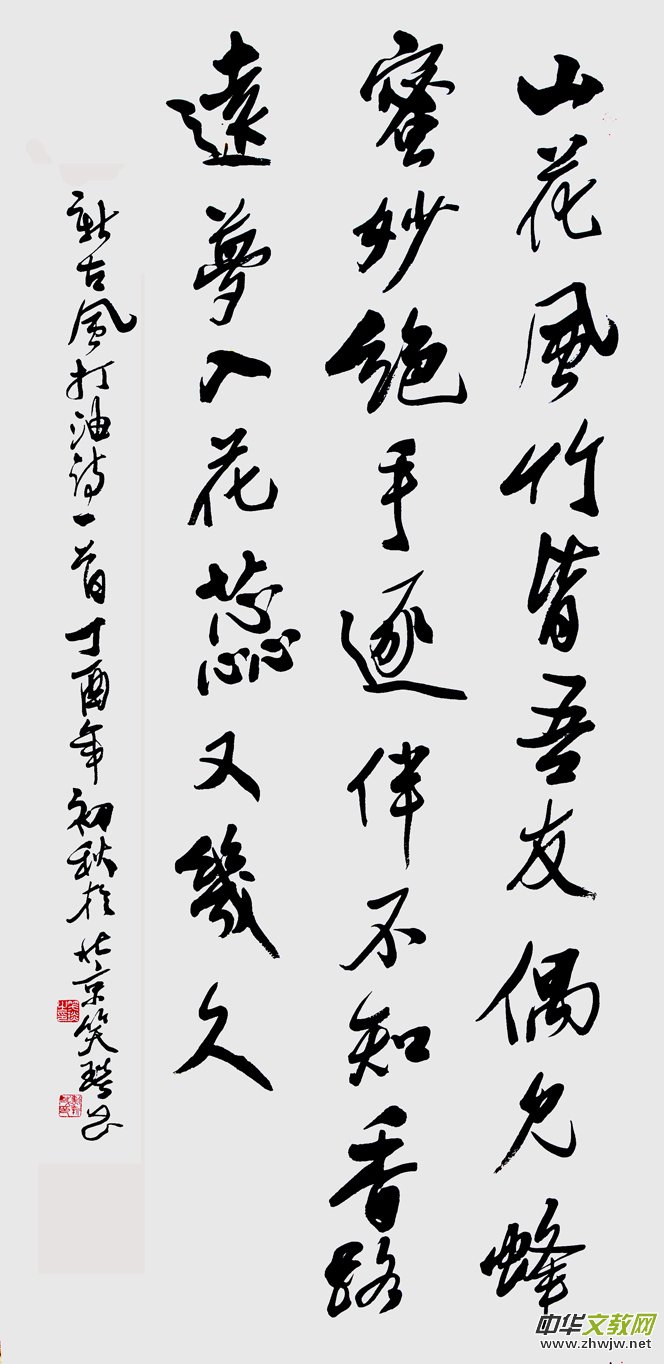 山花風竹皆吾友偶見蜂
蜜妙絶手逐伴不知香路
遠夢入花蕊又幾久
新古風打油詩一首丁酉年初秋於北京笑琴书
中华文教网
www.zhwjw.net